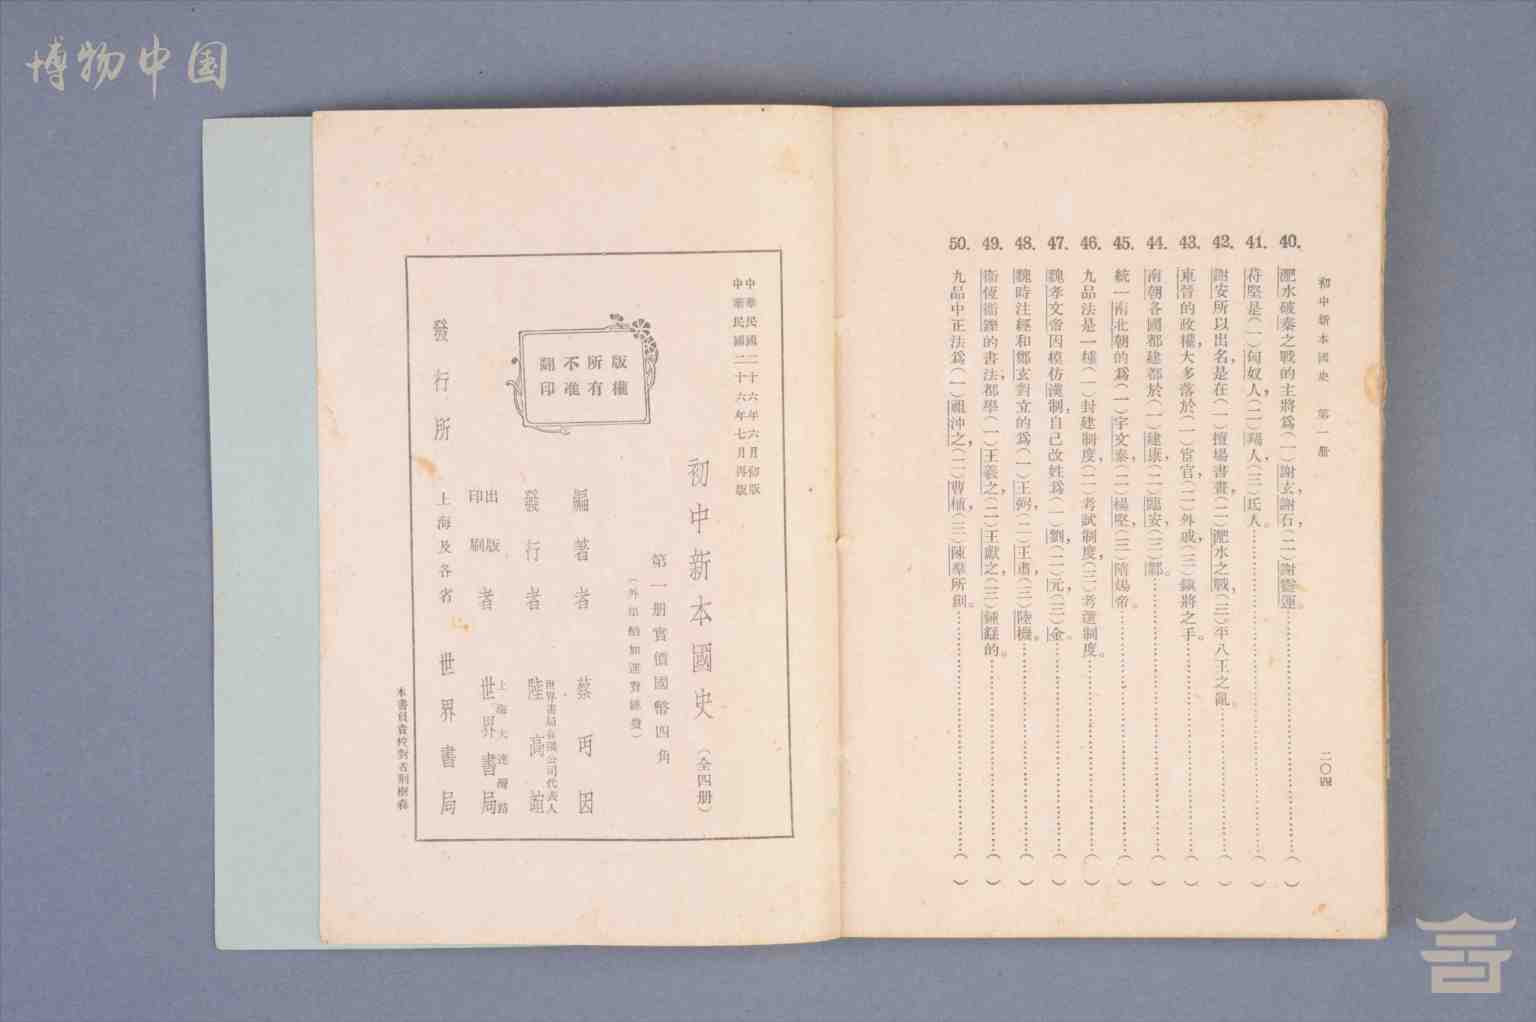 博物中国
初中新本國史 第一册
二〇四
40. 淝水破秦之戰的主將爲(一)謝玄,謝石,(二)謝靈運。()
41. 苻堅是(一)匈奴人,(二)羯人,(三)氐人。()
42. 謝安所以出名,是在(一)擅場書畫,(二)淝水之戰,(三)平八王之亂。()
43. 東晉的政權,大多落於(一)宦官,(二)外戚,(三)鎮將之手。()
44. 南朝各國都建都於(一)建康,(二)臨安,(三)鄴。()
45. 統一南北朝的爲(一)宇文泰,(二)楊堅,(三)隋煬帝。()
46. 九品法是一種(一)封建制度,(二)考試制度,(三)考選制度。()
47. 魏孝文帝因模仿漢制,自己改姓爲(一)劉,(二)元,(三)金。()
48. 魏時注經和鄭玄對立的爲(一)王弼,(二)王肅,(三)陸機。()
49. 衞恆衞鑠的書法,都學(一)王羲之,(二)王獻之,(三)鍾繇的。()
50. 九品中正法爲(一)祖沖之,(二)曹植,(三)陳羣所創。()
中華民國二十六年六月初版
中華民國二十六年七月再版
初中新本國史(全四册)
第一册實價國幣四角
(外埠酌加運費匯費)
版權所有
不准翻印
編著者 蔡丏因
世界書局有限公司代表人
發行者 陸高誼
上海大連灣路
出版印刷者 世界書局
發行所 上海及各省 世界書局
本書負責校對者荆樹森